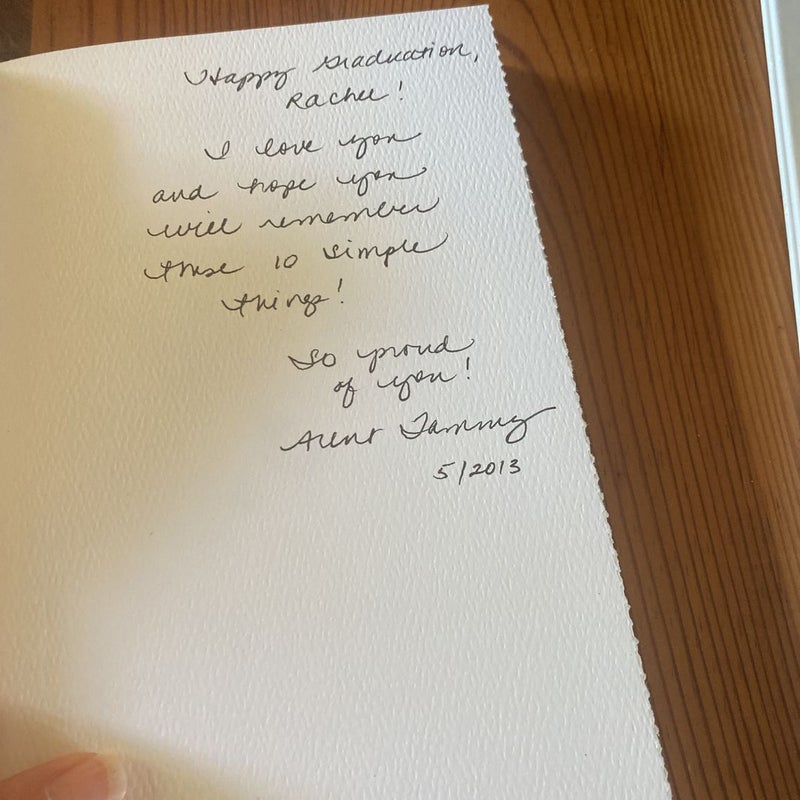 Happy Graduation,
Rachel!
I love you
and hope you
will remember
these 10 simple
things!
So proud
of you!
Aunt Tammy
5/2013